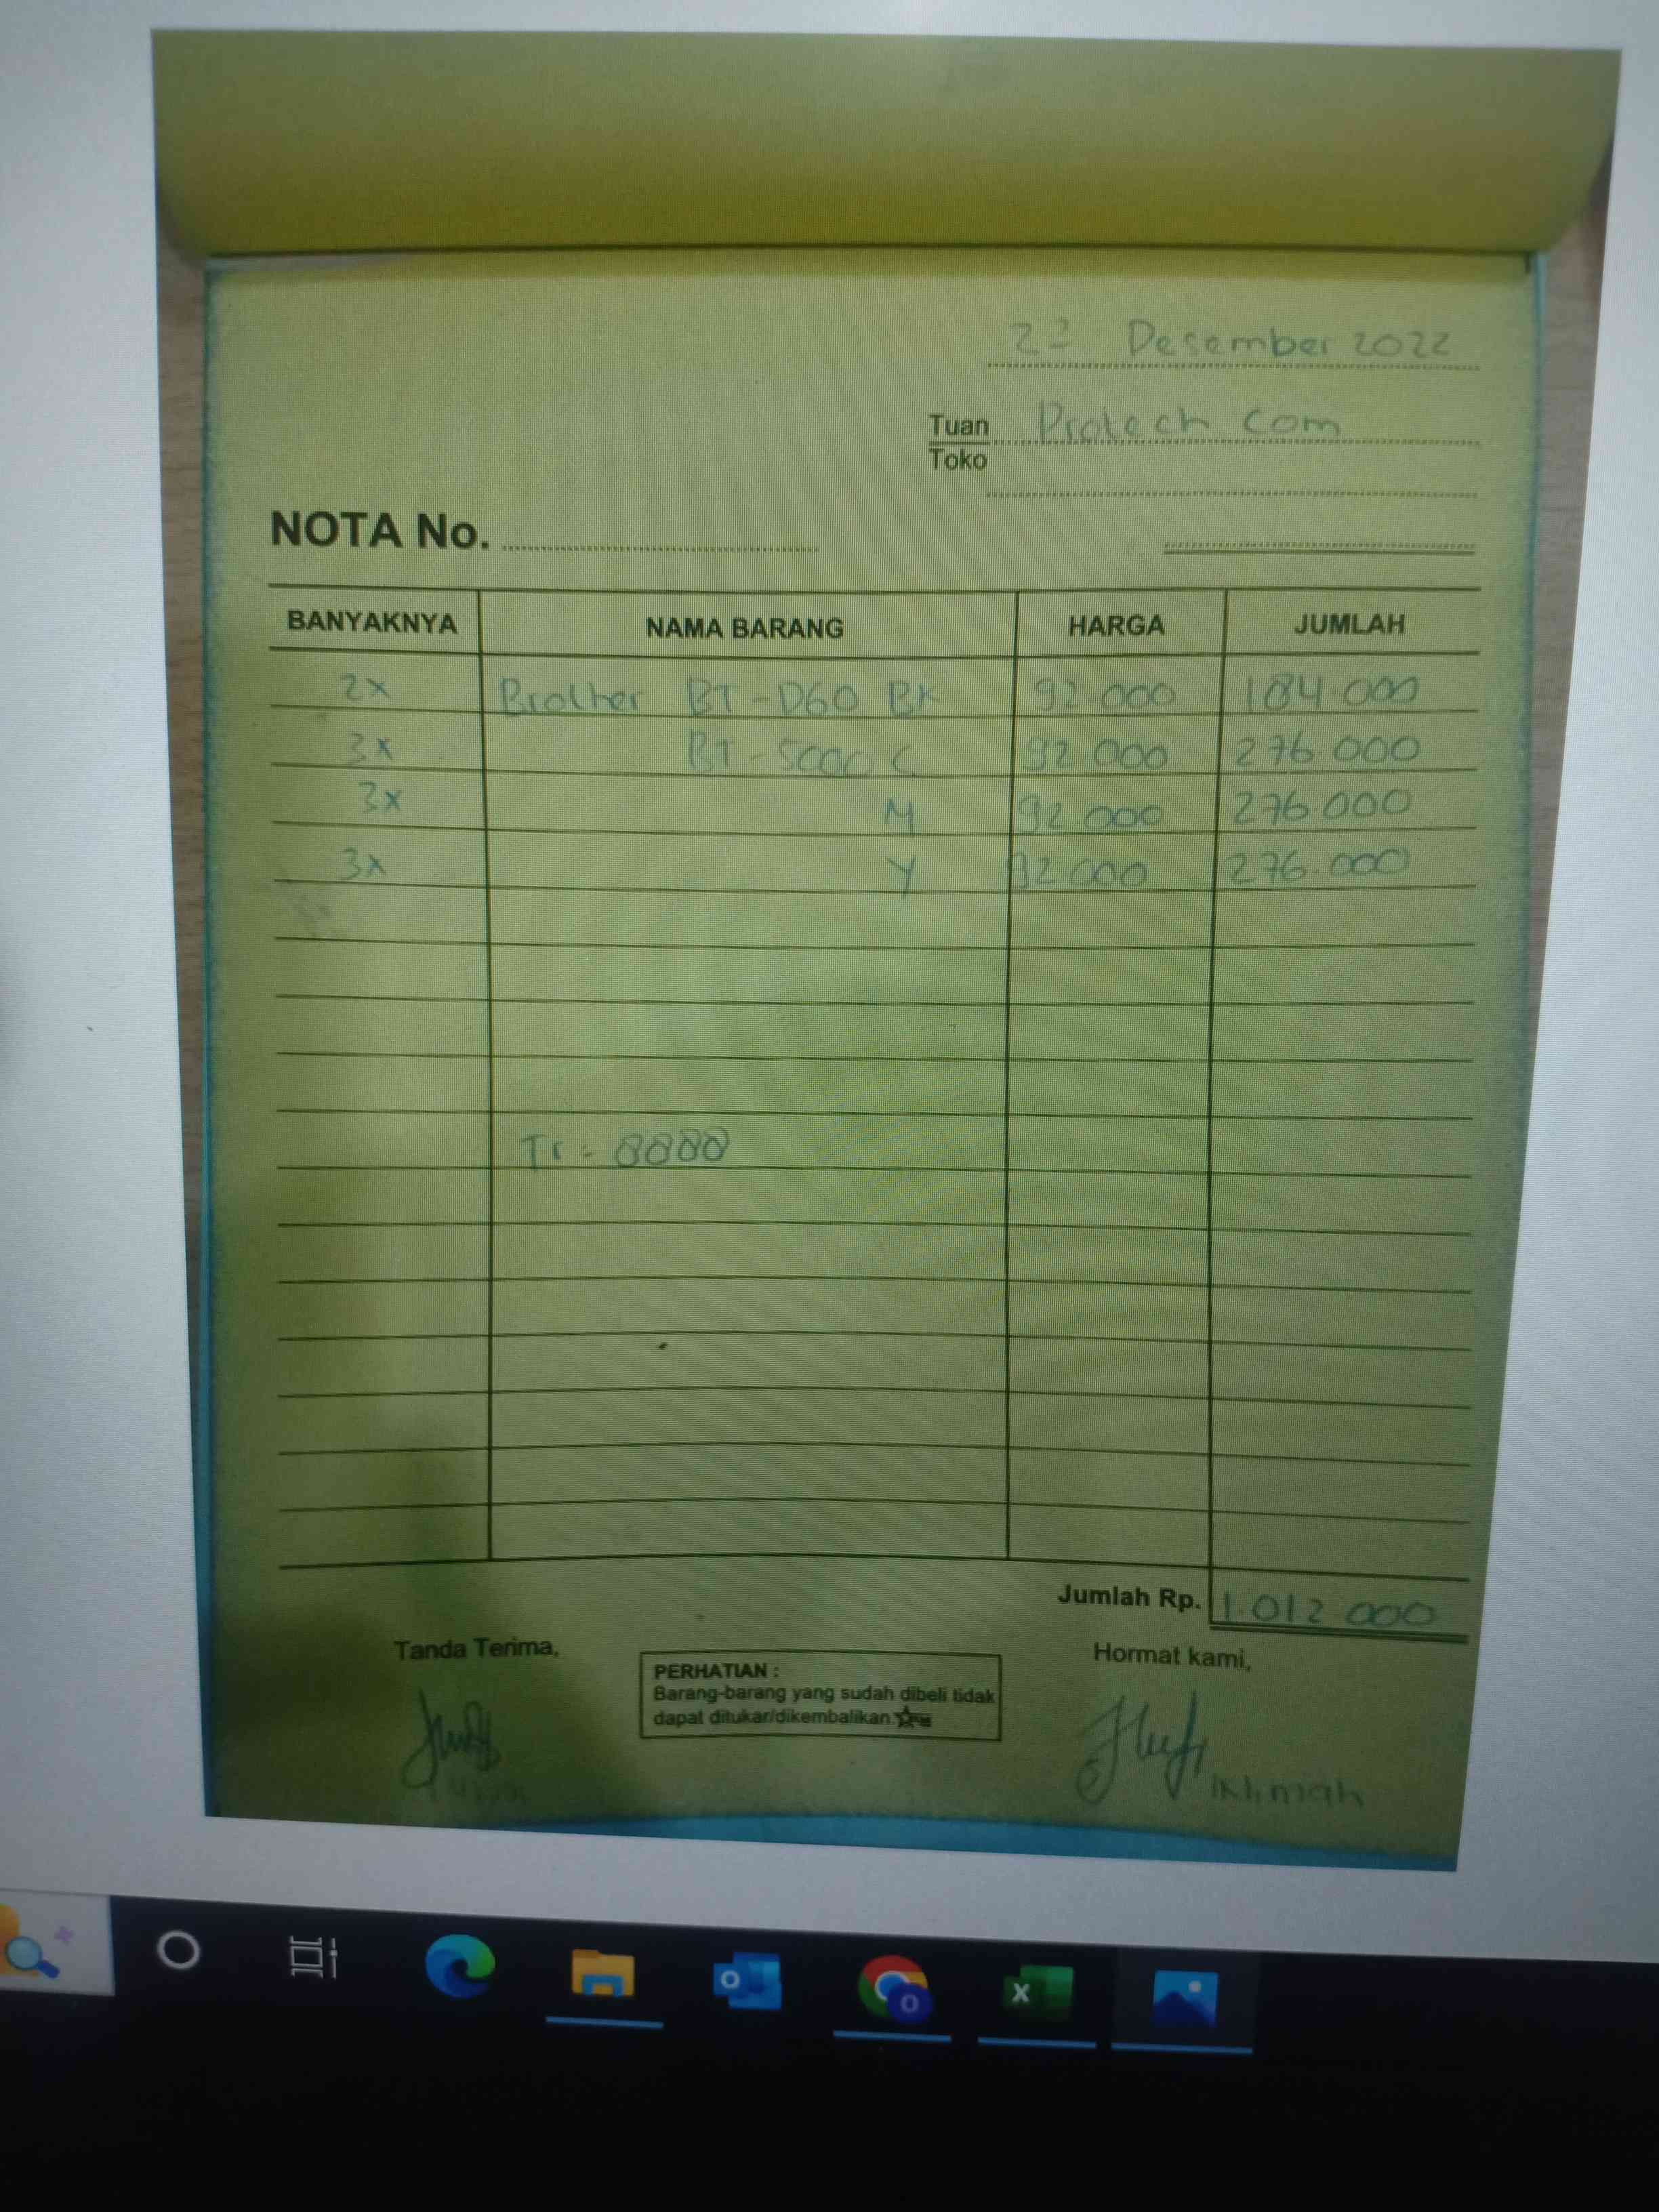 Desember 2022
Tuan Protech com
Toko
NOTA No.
BANYAKNYA NAMA BARANG HARGA JUMLAH
2x Brother BT-D60 BK 92 000 184 000
3x BT-5000 C 92 000 276.000
3x M 92 000 276 000
3x Y 92 000 276.000
= 8888
Jumlah Rp. 1.012 000
Tanda Terima, Hormat kami,
PERHATIAN :
Barang-barang yang sudah dibeli tidak
dapat ditukar/dikembalikan.
Iklimah